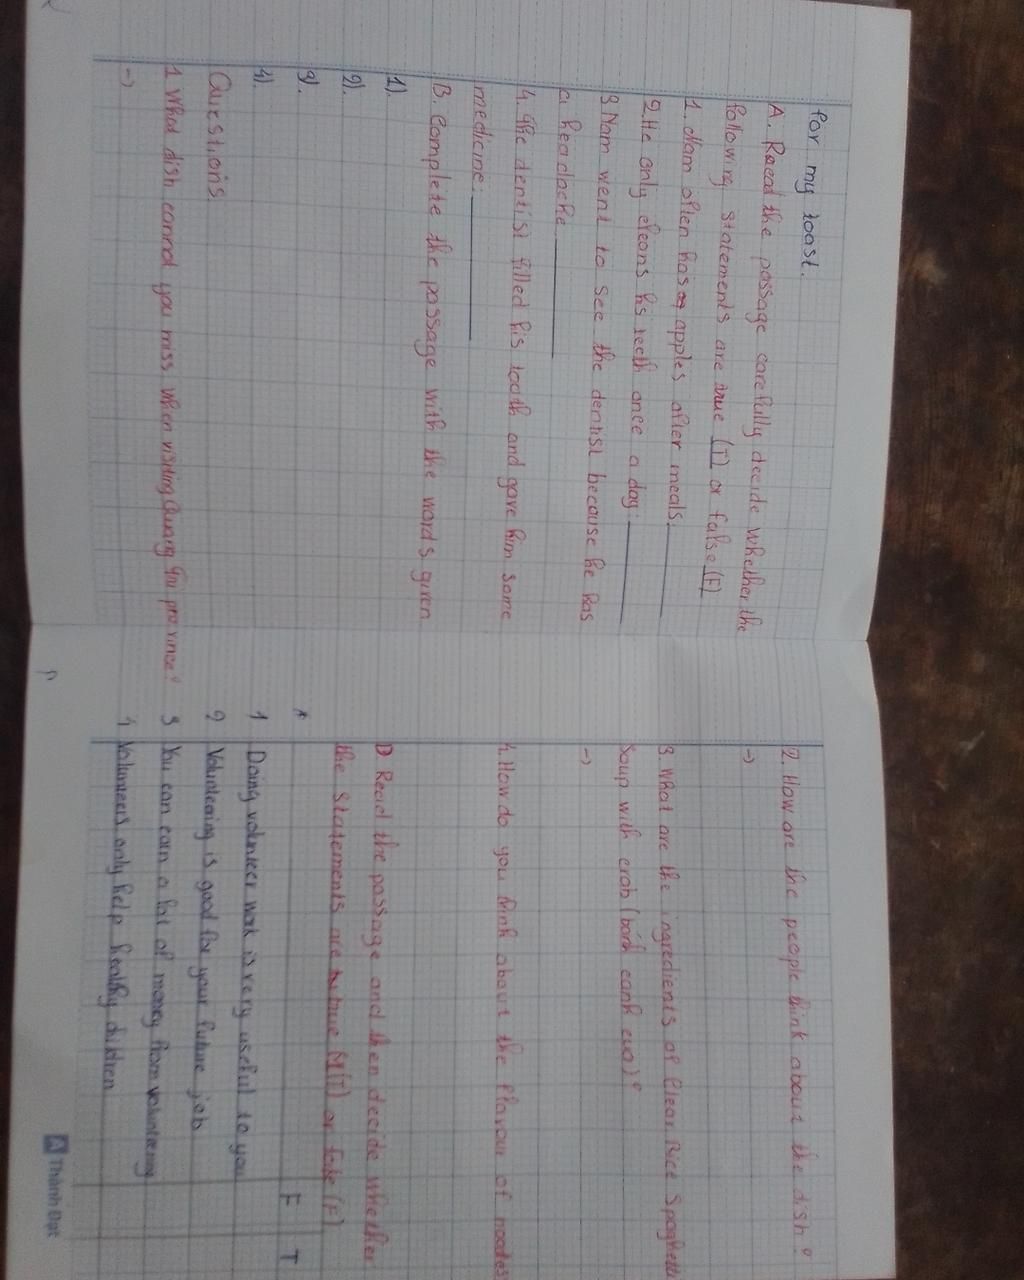 for my toast.
A. Read the passage carefully decide whether the
following statements are true (T) or false (F)
1. Nam often has apples after meals.
2. He only cleans his teeth once a day:
3 Nam went to see the dentist because he has
a headache
4. The dentist filled his tooth and gave him some
medicine:
B. complete the passage with the words given
1).
2).
3).
4).
Questions.
1 What dish cannot you miss when visiting Quang province?
->
2. How are the people think about the dish?
->
3. What are the ingredients of Clear Rice Spaghetti
Soup with crab (bánh canh cua)?
->
4. How do you think about the flavour of noodles
D Read the passage and then decide whether
the statements are true (T) or false (F)
* F T
1 Doing volunteer work is very useful to you
2 Volunteering is good for your future job
3 You can earn a lot of money from volunteering
4 Volunteers only help healthy children
Thành Đạt